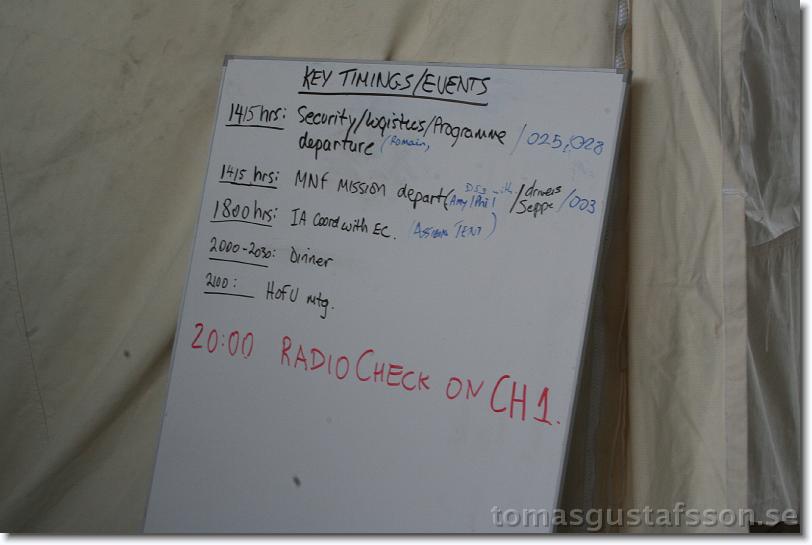 KEY TIMINGS/EVENTS
1415hrs: Security/Logistics/Programme / 025,028
departure (Romain,
1415 hrs: MNF MISSION depart (Amy/Phil / drivers Seppe /003
1800hrs: IA Coord with EC. (ASSESSM TENT)
2000-2030: Dinner
2100: HOFU mtg.
20:00 RADIO CHECK ON CH1.
tomasgustafsson.se